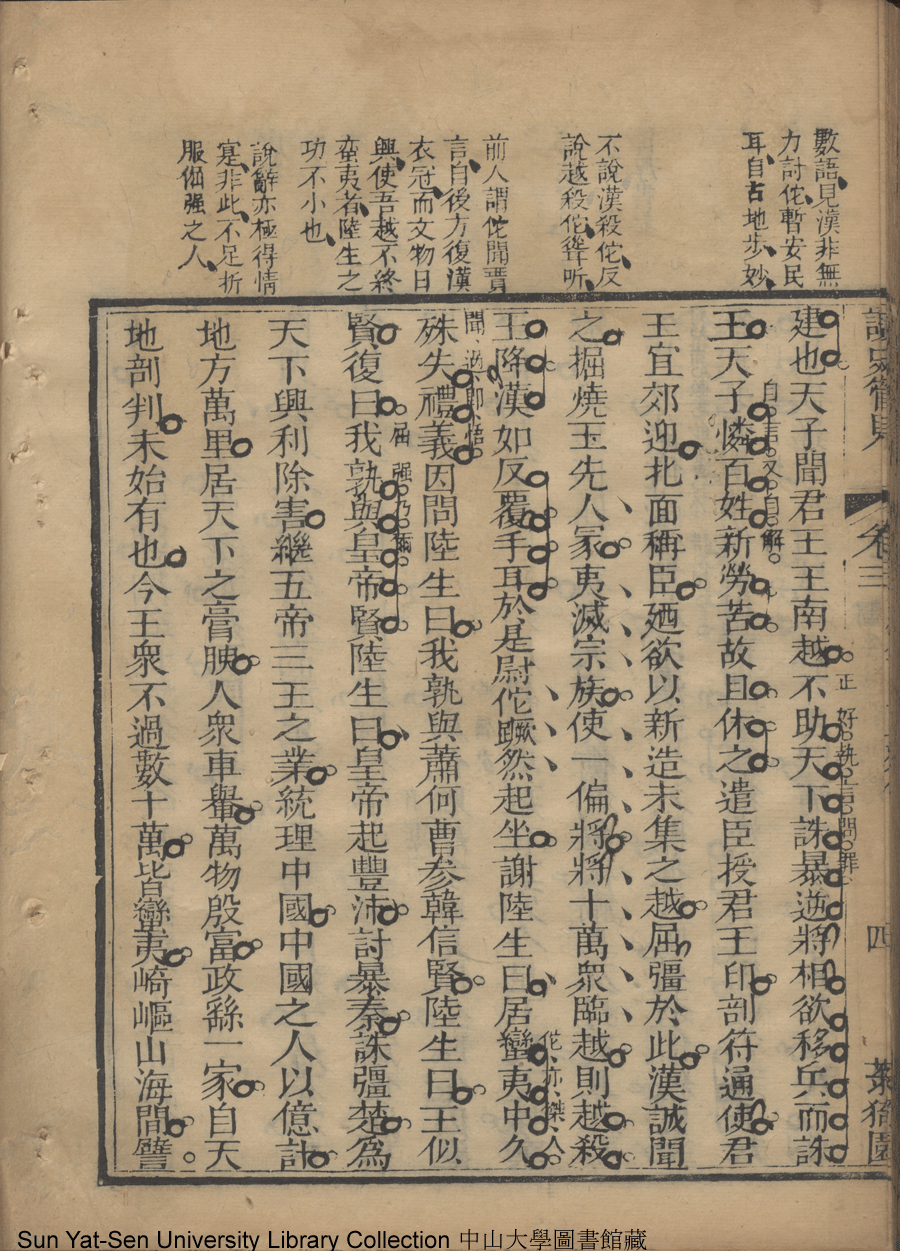 數語見漢非無
力討佗暫安民
耳自古地步妙
不說漢殺佗反
說越殺佗聳听
前人謂佗聞賈
言自後方復漢
衣冠而文物日
興使吾越不終
蠻夷者陸生之
功不小也
說辭亦極得情
寔非此不足折
服倔强之人
卷三
四
建也天子聞君王王南越不助天下誅暴逆將相欲移兵而誅
正好執言問罪
王天子憐百姓新勞苦故且休之遣臣授君王印剖符通使君
自言又自解
王宜郊迎北面稱臣廼欲以新造未集之越屈彊於此漢誠聞
之掘燒王先人冢夷滅宗族使一偏將將十萬衆臨越則越殺
王降漢如反覆手耳於是尉佗蹶然起坐謝陸生曰居蠻夷中久
佗亦傑人
殊失禮義因問陸生曰我孰與蕭何曹參韓信賢陸生曰王似
聞過即悟
賢復曰我孰與皇帝賢陸生曰皇帝起豐沛討暴秦誅彊楚爲
天下興利除害繼五帝三王之業統理中國中國之人以億計
地方萬里居天下之膏腴人衆車轝萬物殷富政繇一家自天
地剖判未始有也今王衆不過數十萬皆蠻夷崎嶇山海間譬
Sun Yat-Sen University Library Collection 中山大學圖書館藏